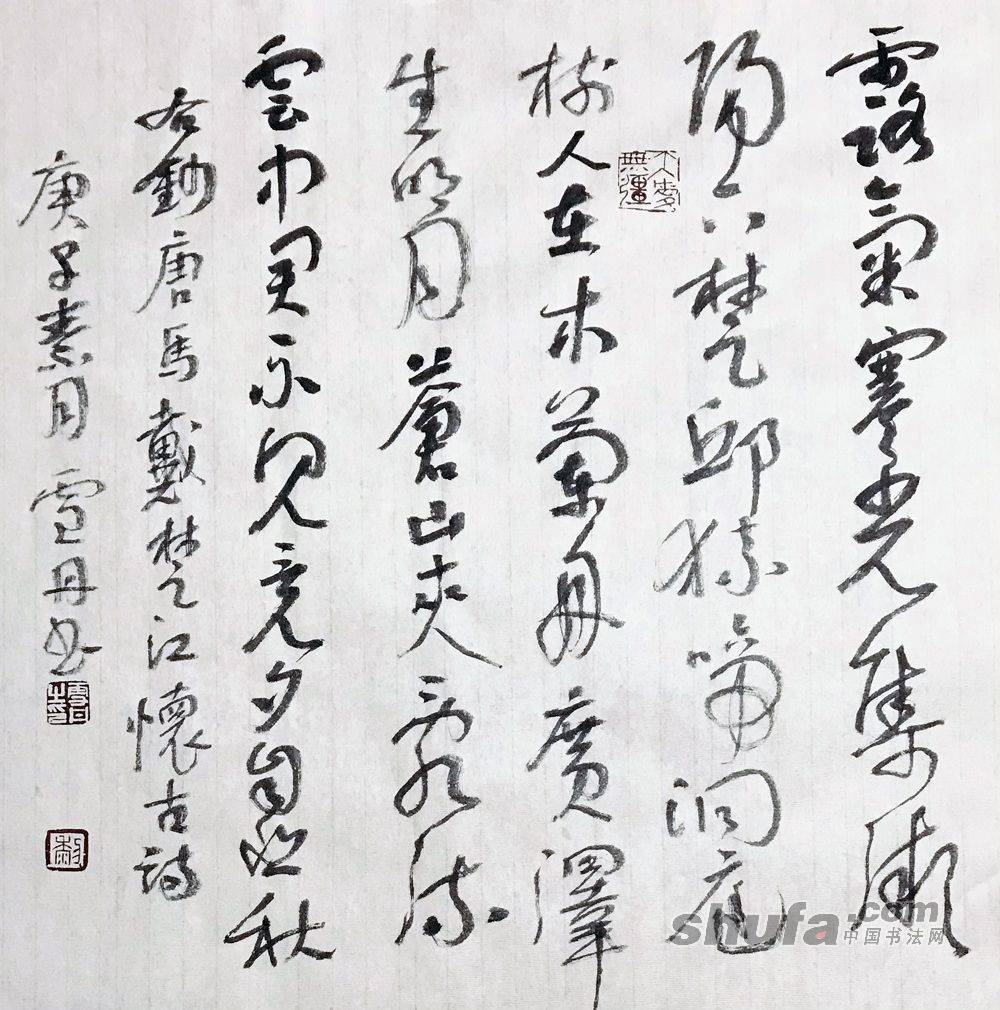 露氣寒光集微
陽下楚邱猿啼洞庭
樹人在木蘭舟廣澤
生明月蒼山夾亂流
雲中君不見竟夕自悲秋
右唐馬戴楚江懷古詩
庚子素月雪丹書
shufa.com
中国书法网